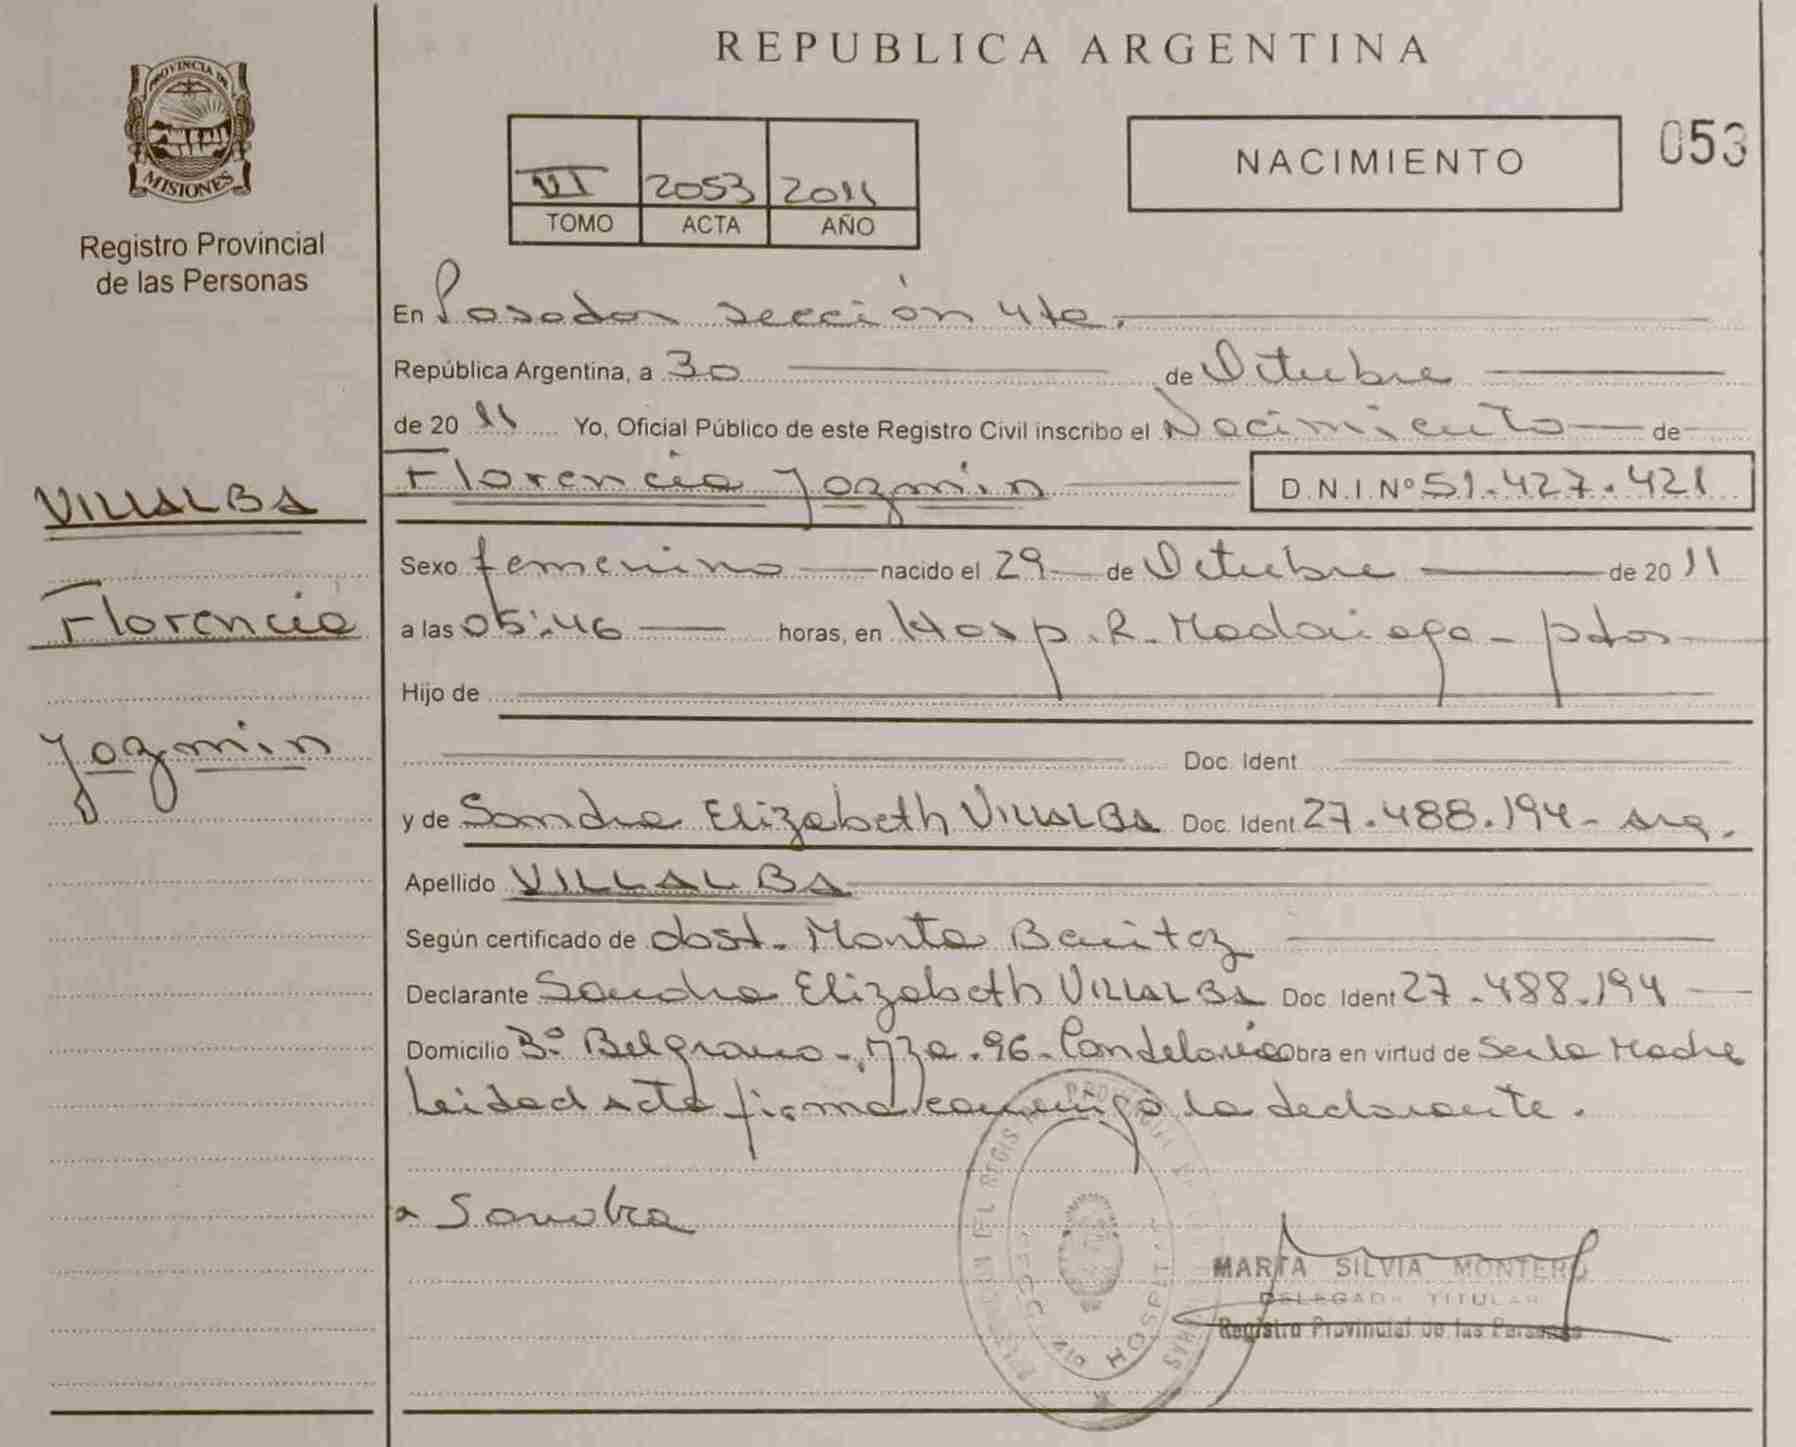 PROVINCIA DE
MISIONES
Registro Provincial
de las Personas
VILLALBA
Florencia
Jazmin
REPUBLICA ARGENTINA
VI 2053 2011
TOMO ACTA AÑO
NACIMIENTO
053
En Posadas sección 4ta.
República Argentina, a 30 de Octubre
de 2011 Yo, Oficial Público de este Registro Civil inscribo el Nacimiento de
Florencia Jazmin D.N.I. Nº 51.427.421
Sexo femenino nacido el 29 de Octubre de 2011
a las 05:46 horas, en Hosp. R. Madariaga - pdas
Hijo de
Doc. Ident
y de Sandra Elizabeth VILLALBA Doc. Ident 27.488.194 - arg.
Apellido VILLALBA
Según certificado de obst. Benitez
Declarante Sandra Elizabeth VILLALBA Doc. Ident 27.488.194
Domicilio Bº Belgrano - Mza. 96 - Candelaria obra en virtud de ser la Madre
Leida el Acta firma conmigo la declarante.
Sandra
MARTA SILVIA MONTERO
DELEGADA TITULAR
Registro Provincial de las Personas
HOSPITAL